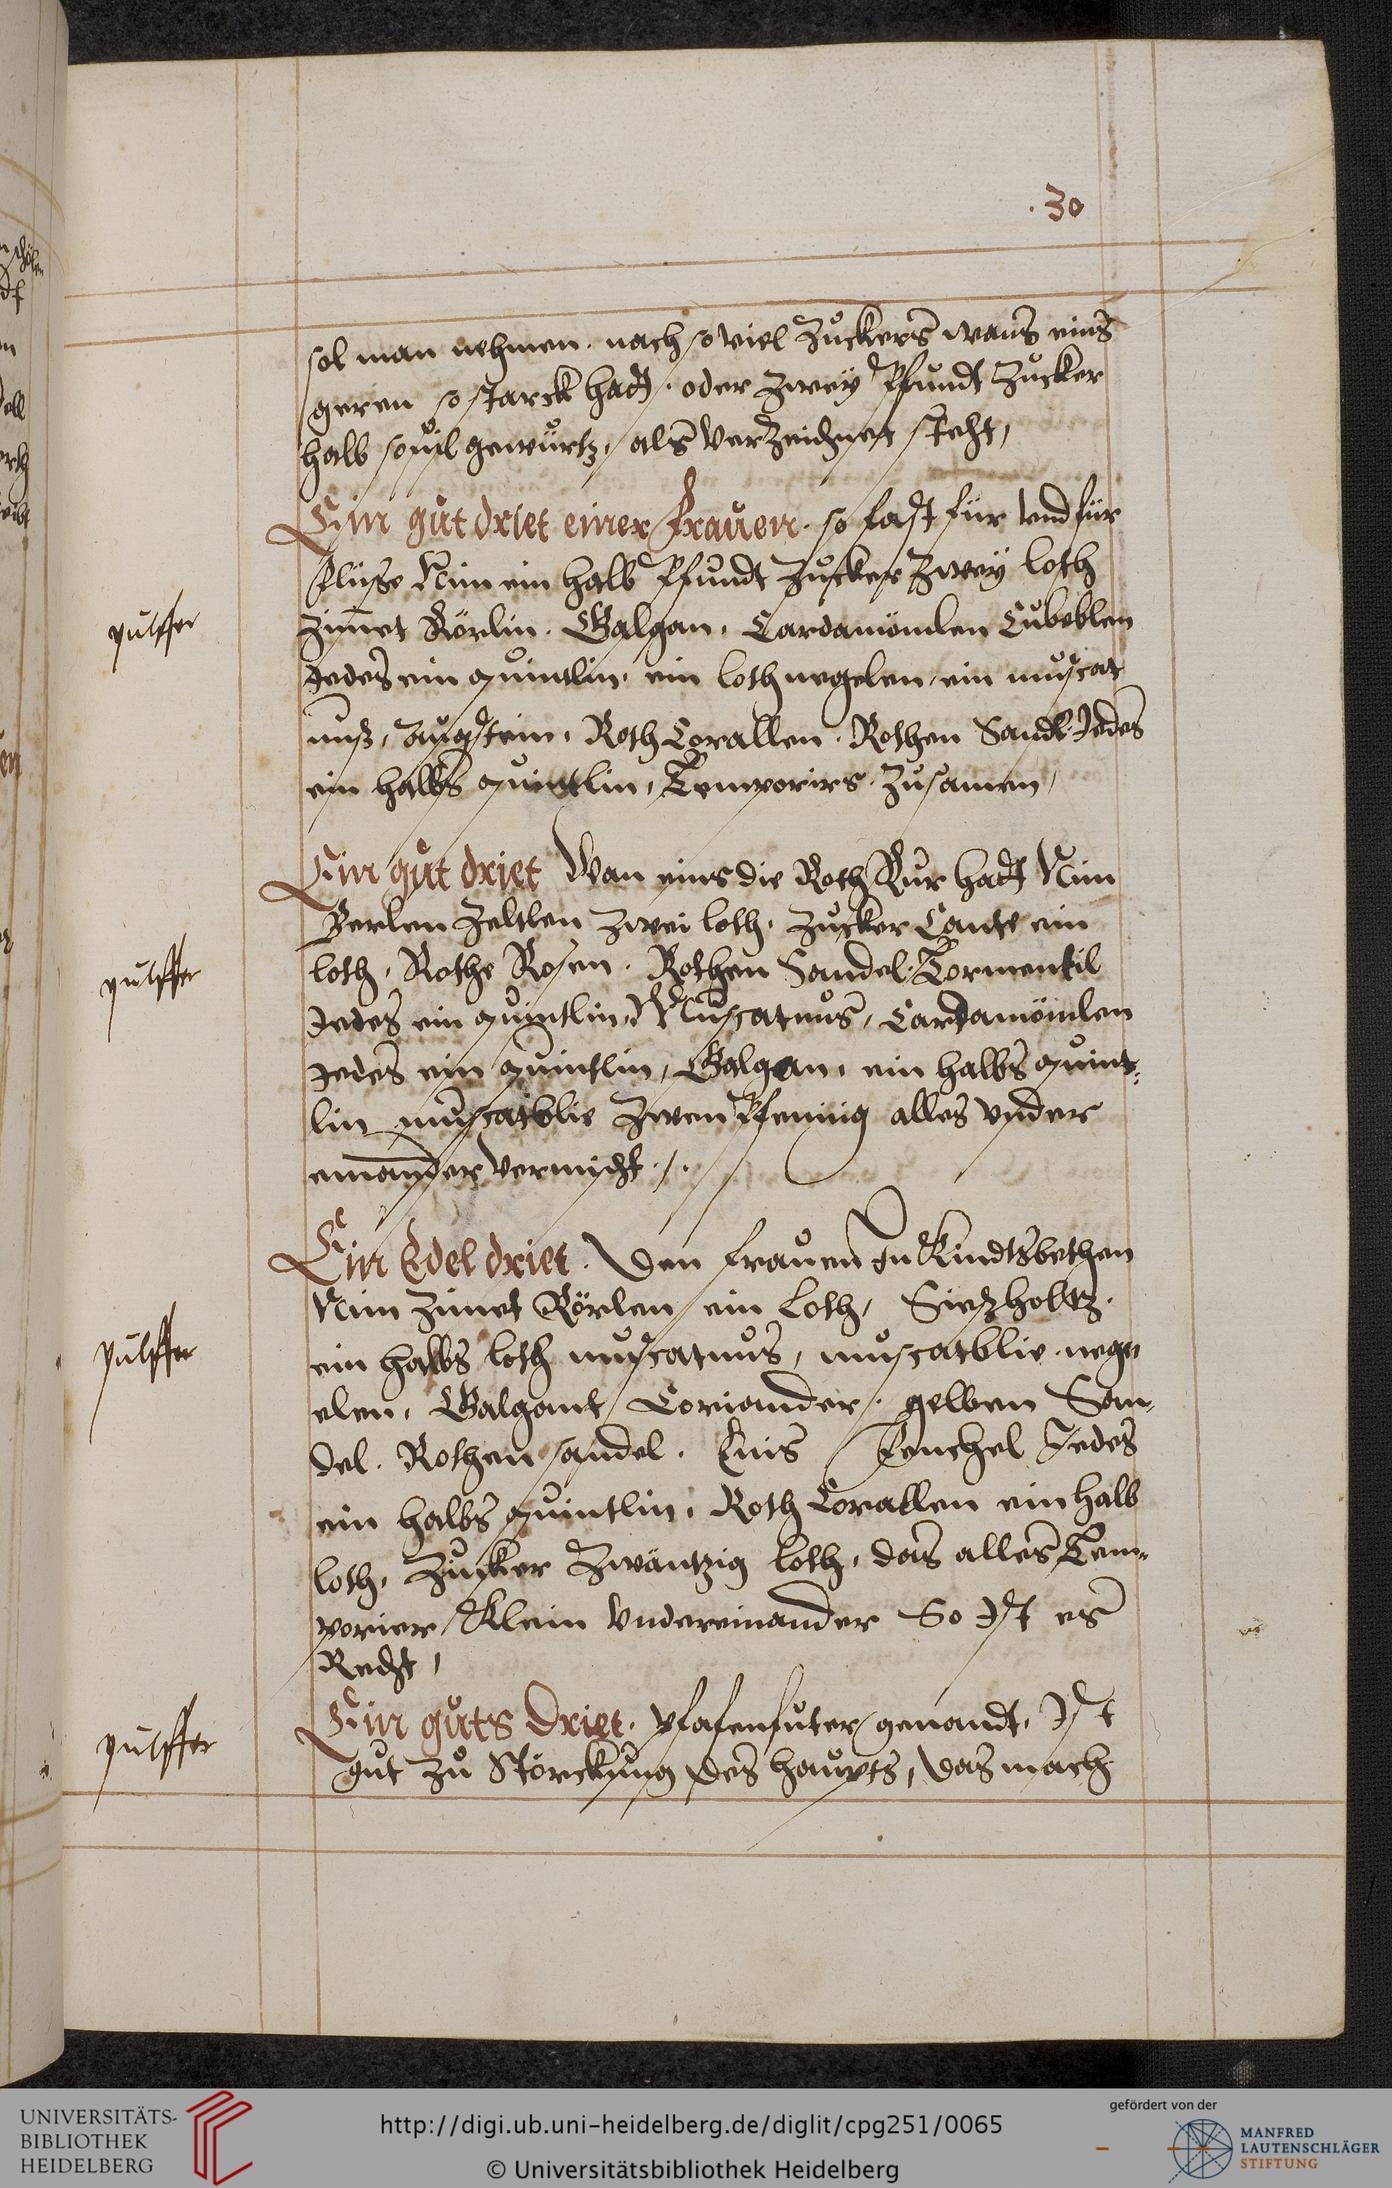 30
sol man nehmen. nach so viel Zuckers wans eins
geren so starck hatt. oder zwey Pfundt Zucker
halb souil gewurtz, als verzeichnet steht,
Ein gut driet einer frauen. so fast für vnd für
Flüsse Nim ein halb Pfundt Zucker Zwey loth
Zimet Rörlin. Galgan. Cardamömlen Cubeblen
Jedes ein quintlin. ein loth negelen, ein muscat
nuss, Augstein. Roth Corallen. Rothen Sandl Jedes
ein halbs quintlin, Temporirs. Zusamen,
pulffer
Ein gut driet Wan eins die Roth Rur hatt Nim
Berlen Zeltlen Zwei loth. Zucker Cante ein
loth. Rothe Rosen. Rothen Sandel. Tormentil
Jedes ein quintlin, Muscatnus, Cardamömlen
Jedes ein quintlin, Galgan. ein halbs quint-
lin muscatblie Zwen Pfening alles vnder
einander vermischt ./.
pulffer
Ein Edel driet. Den frauen In Kindtsbethen
Nim Zimet Rörlen ein Loth, Siesholtz.
ein halbs loth muscatnus, muscatblie. nege
elen. Galgant Coriander. gelben San-
del. Rothen sandel. Enis Fenchel Jedes
ein halbs quintlin. Roth Corallen ein halb
loth. Zucker Zwäntzig loth. das alles Tem-
porier Klein vndereinander So Ist es
Recht,
pulffer
Ein guts Driet. pfafenfuter genandt. Ist
gut zu Störckung des haupts, das mach
pulffer
UNIVERSITÄTS-
BIBLIOTHEK
HEIDELBERG
http://digi.ub.uni-heidelberg.de/diglit/cpg251/0065
© Universitätsbibliothek Heidelberg
gefördert von der
MANFRED
LAUTENSCHLÄGER
STIFTUNG